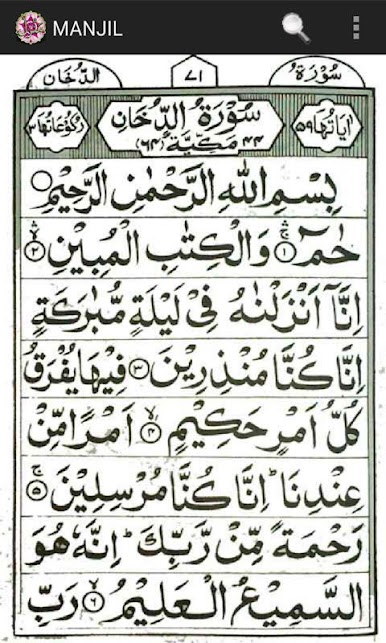 MANJIL
سُوْرَةُ ٧١ الدُّخَان
اٰيَاتُهَا ٥٩ سُوْرَةُ الدُّخَانِ رُكُوْعَاتُهَا ٣
٤٤ مَكِّيَّةٌ (٦٤)
بِسْمِ اللّٰهِ الرَّحْمٰنِ الرَّحِيْمِ
حٰمٓ ۚ ۝١ وَالْكِتٰبِ الْمُبِيْنِ ۙ ۝٢
اِنَّاۤ اَنْزَلْنٰهُ فِىْ لَيْلَةٍ مُّبٰرَكَةٍ
اِنَّا كُنَّا مُنْذِرِيْنَ ۝٣ فِيْهَا يُفْرَقُ
كُلُّ اَمْرٍ حَكِيْمٍ ۙ ۝٤ اَمْرًا مِّنْ
عِنْدِنَا ؕ اِنَّا كُنَّا مُرْسِلِيْنَ ۚ ۝٥
رَحْمَةً مِّنْ رَّبِّكَ ؕ اِنَّهٗ هُوَ
السَّمِيْعُ الْعَلِيْمُ ۙ ۝٦ رَبِّ